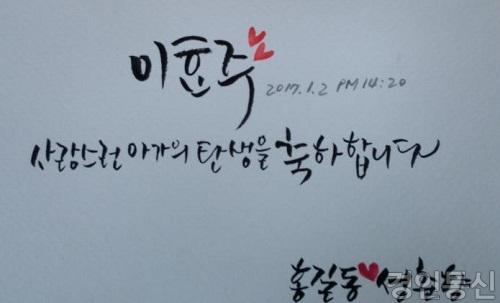 이효주 2017.1.2 PM 14:20
사랑스런 아가의 탄생을 축하합니다
홍길동 성춘향
경인통신